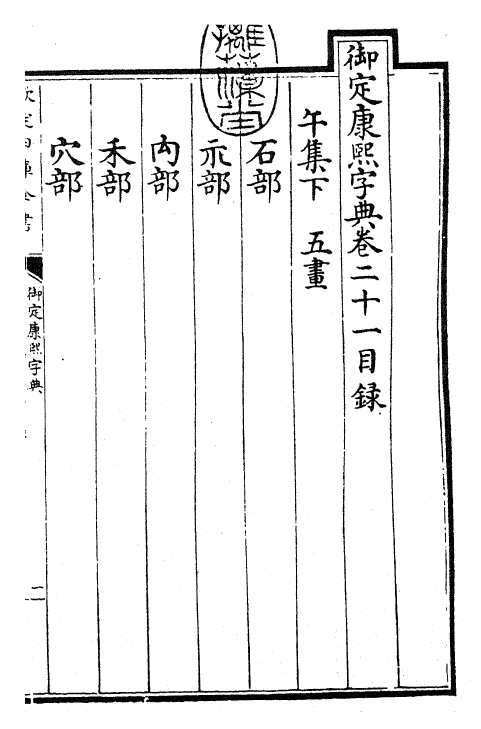 御定康熙字典卷二十一目録
午集下　五畫
石部
示部
禸部
禾部
穴部
御定康熙字典
二